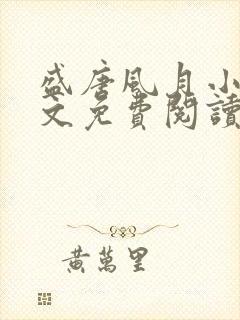 盛唐風月小
文免費閱讀
黃萬里